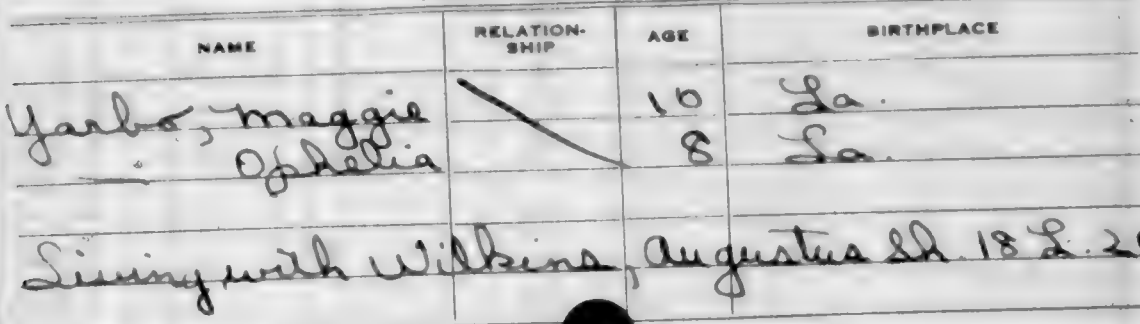 NAME RELATION-SHIP AGE BIRTHPLACE
Yarbo, Maggie 10 La.
— Ophelia 8 La.
Living with Wilkins, Augustus Sh. 18 L. 2